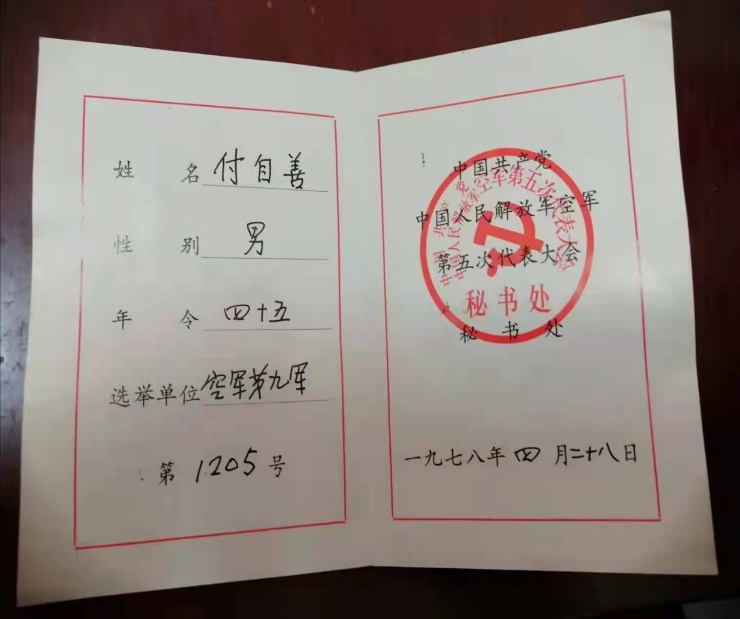 姓 名 付自善
性 别 男
年 令 四十五
选举单位 空军第九军
第 1205 号
中国共产党
中国人民解放军空军
第五次代表大会
秘 书 处
中国共产党
中国人民解放军空军第五次代表大会
秘书处
一九七八年 四 月二十八日